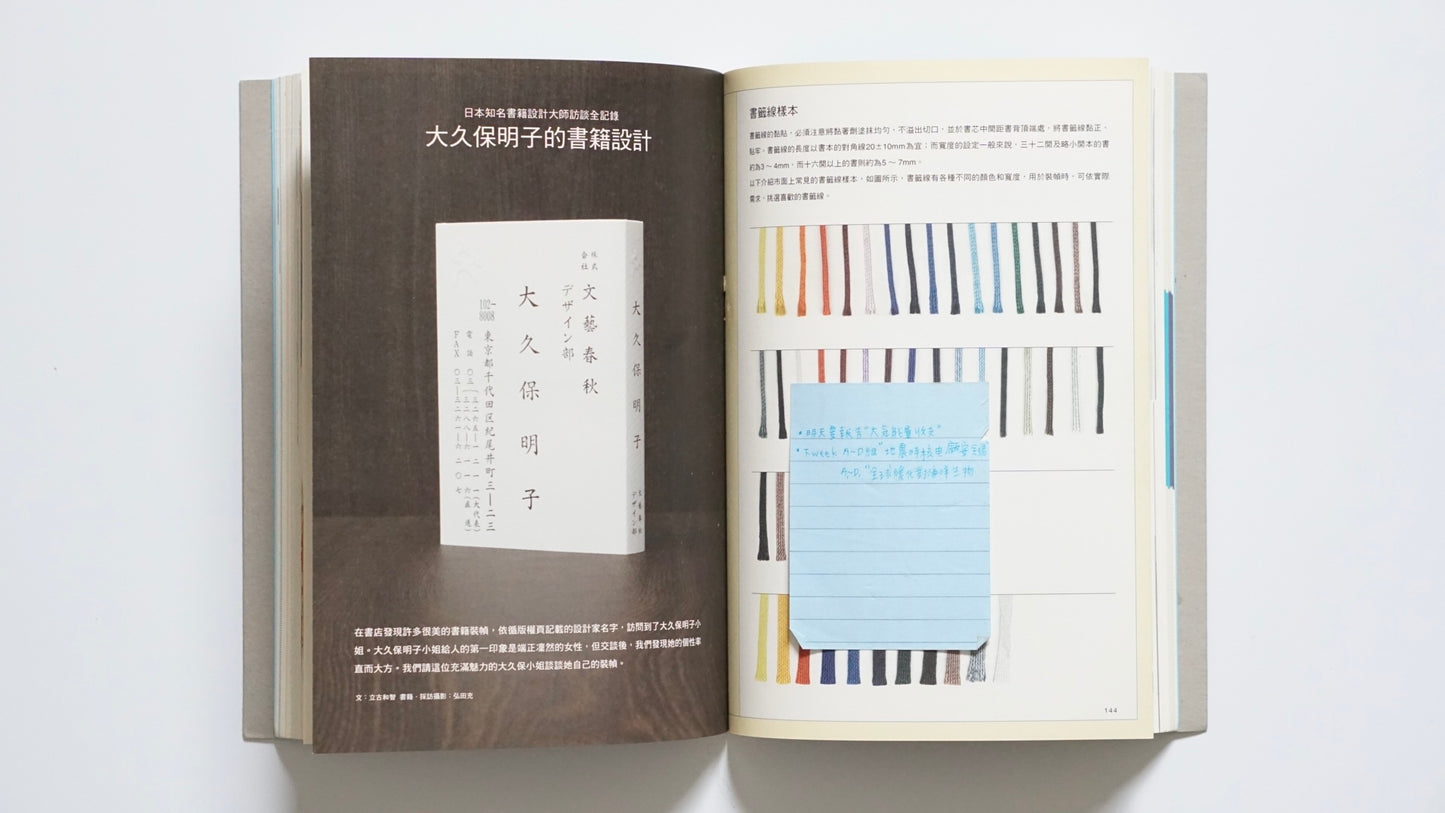 日本知名書籍設計大師訪談全記錄
大久保明子的書籍設計
株式
会社
文藝春秋
デザイン部
大久保明子
102-
8008
東京都千代田区紀尾井町三ー二三
電話 〇三
FAX 〇三
大久保明子
文藝春秋
デザイン部
在書店發現許多很美的書籍裝幀，依循版權頁記載的設計家名字，訪問到了大久保明子小
姐。大久保明子小姐給人的第一印象是端正凜然的女性，但交談後，我們發現她的個性率
直而大方。我們請這位充滿魅力的大久保小姐談談她自己的裝幀。
文：立古和智 書籍・採訪攝影：弘田充
書籤線樣本
書籤線的黏貼，必須注意將黏著劑塗抹均勻，不溢出切口，並於書芯中間距書背頂端處，將書籤線黏正、
黏牢。書籤線的長度以書本的對角線20±10mm為宜；而寬度的設定一般來說，三十二開及略小開本的書
約為3～4mm，而十六開以上的書則約為5～7mm。
以下介紹市面上常見的書籤線樣本，如圖所示，書籤線有各種不同的顏色和寬度，用於裝幀時，可依實際
需求，挑選喜歡的書籤線。
•明天要報告"大氣能量收支"
•下week A~D組"地震時核电廠安全
A~D."全球暖化對海洋生物
144